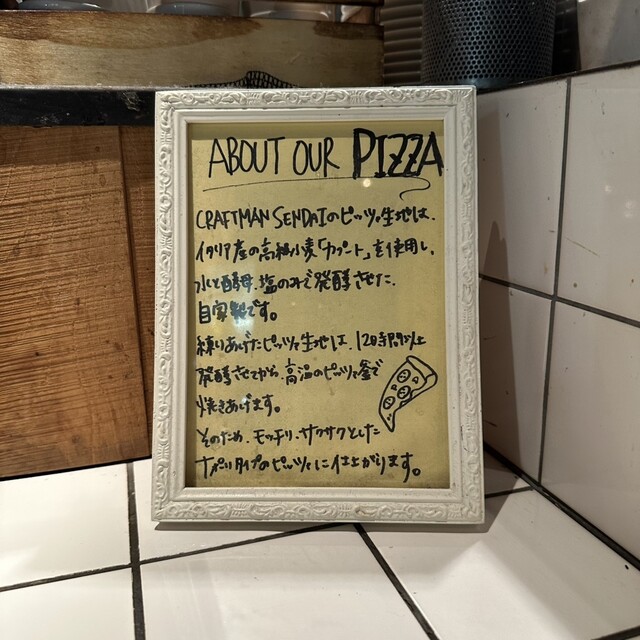 ABOUT OUR PIZZA
CRAFTMAN SENDAIのピッツァ生地は、
イタリア産の高級小麦「カプート」を使用し、
水と酵母、塩のみで発酵させた、
自家製です。
練りあげたピッツァ生地は、12時間以上
発酵させてから、高温のピッツァ釜で
焼きあげます。
そのため、モッチリ、サクサクとした
ナポリタイプのピッツァに仕上がります。